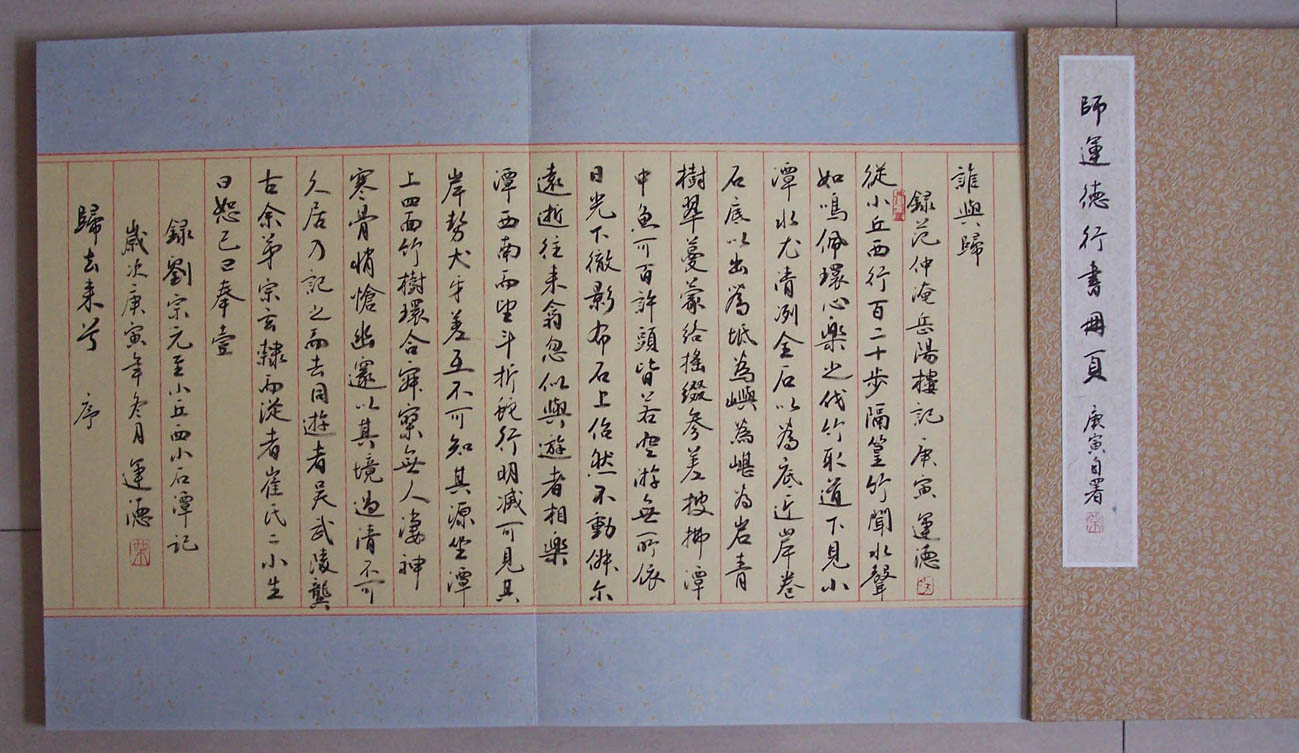 師運德行書冊頁
庚寅自署
誰與歸
録范仲淹岳陽樓記庚寅運德
從小丘西行百二十步隔篁竹聞水聲
如鳴佩環心樂之伐竹取道下見小
潭水尤清冽全石以為底近岸卷
石底以出為坻為嶼為嵁為岩青
樹翠蔓蒙絡搖綴參差披拂潭
中魚可百許頭皆若空游無所依
日光下徹影布石上佁然不動俶尔
遠逝往来翕忽似與遊者相樂
潭西南而望斗折蛇行明滅可見其
岸勢犬牙差互不可知其源坐潭
上四面竹樹環合寂寥無人淒神
寒骨悄愴幽邃以其境過清不可
久居乃記之而去同遊者吴武陵龔
古余弟宗玄隸而從者崔氏二小生
曰恕己曰奉壹
録劉宗元至小丘西小石潭記
歲次庚寅年冬月運德
歸去来兮 序